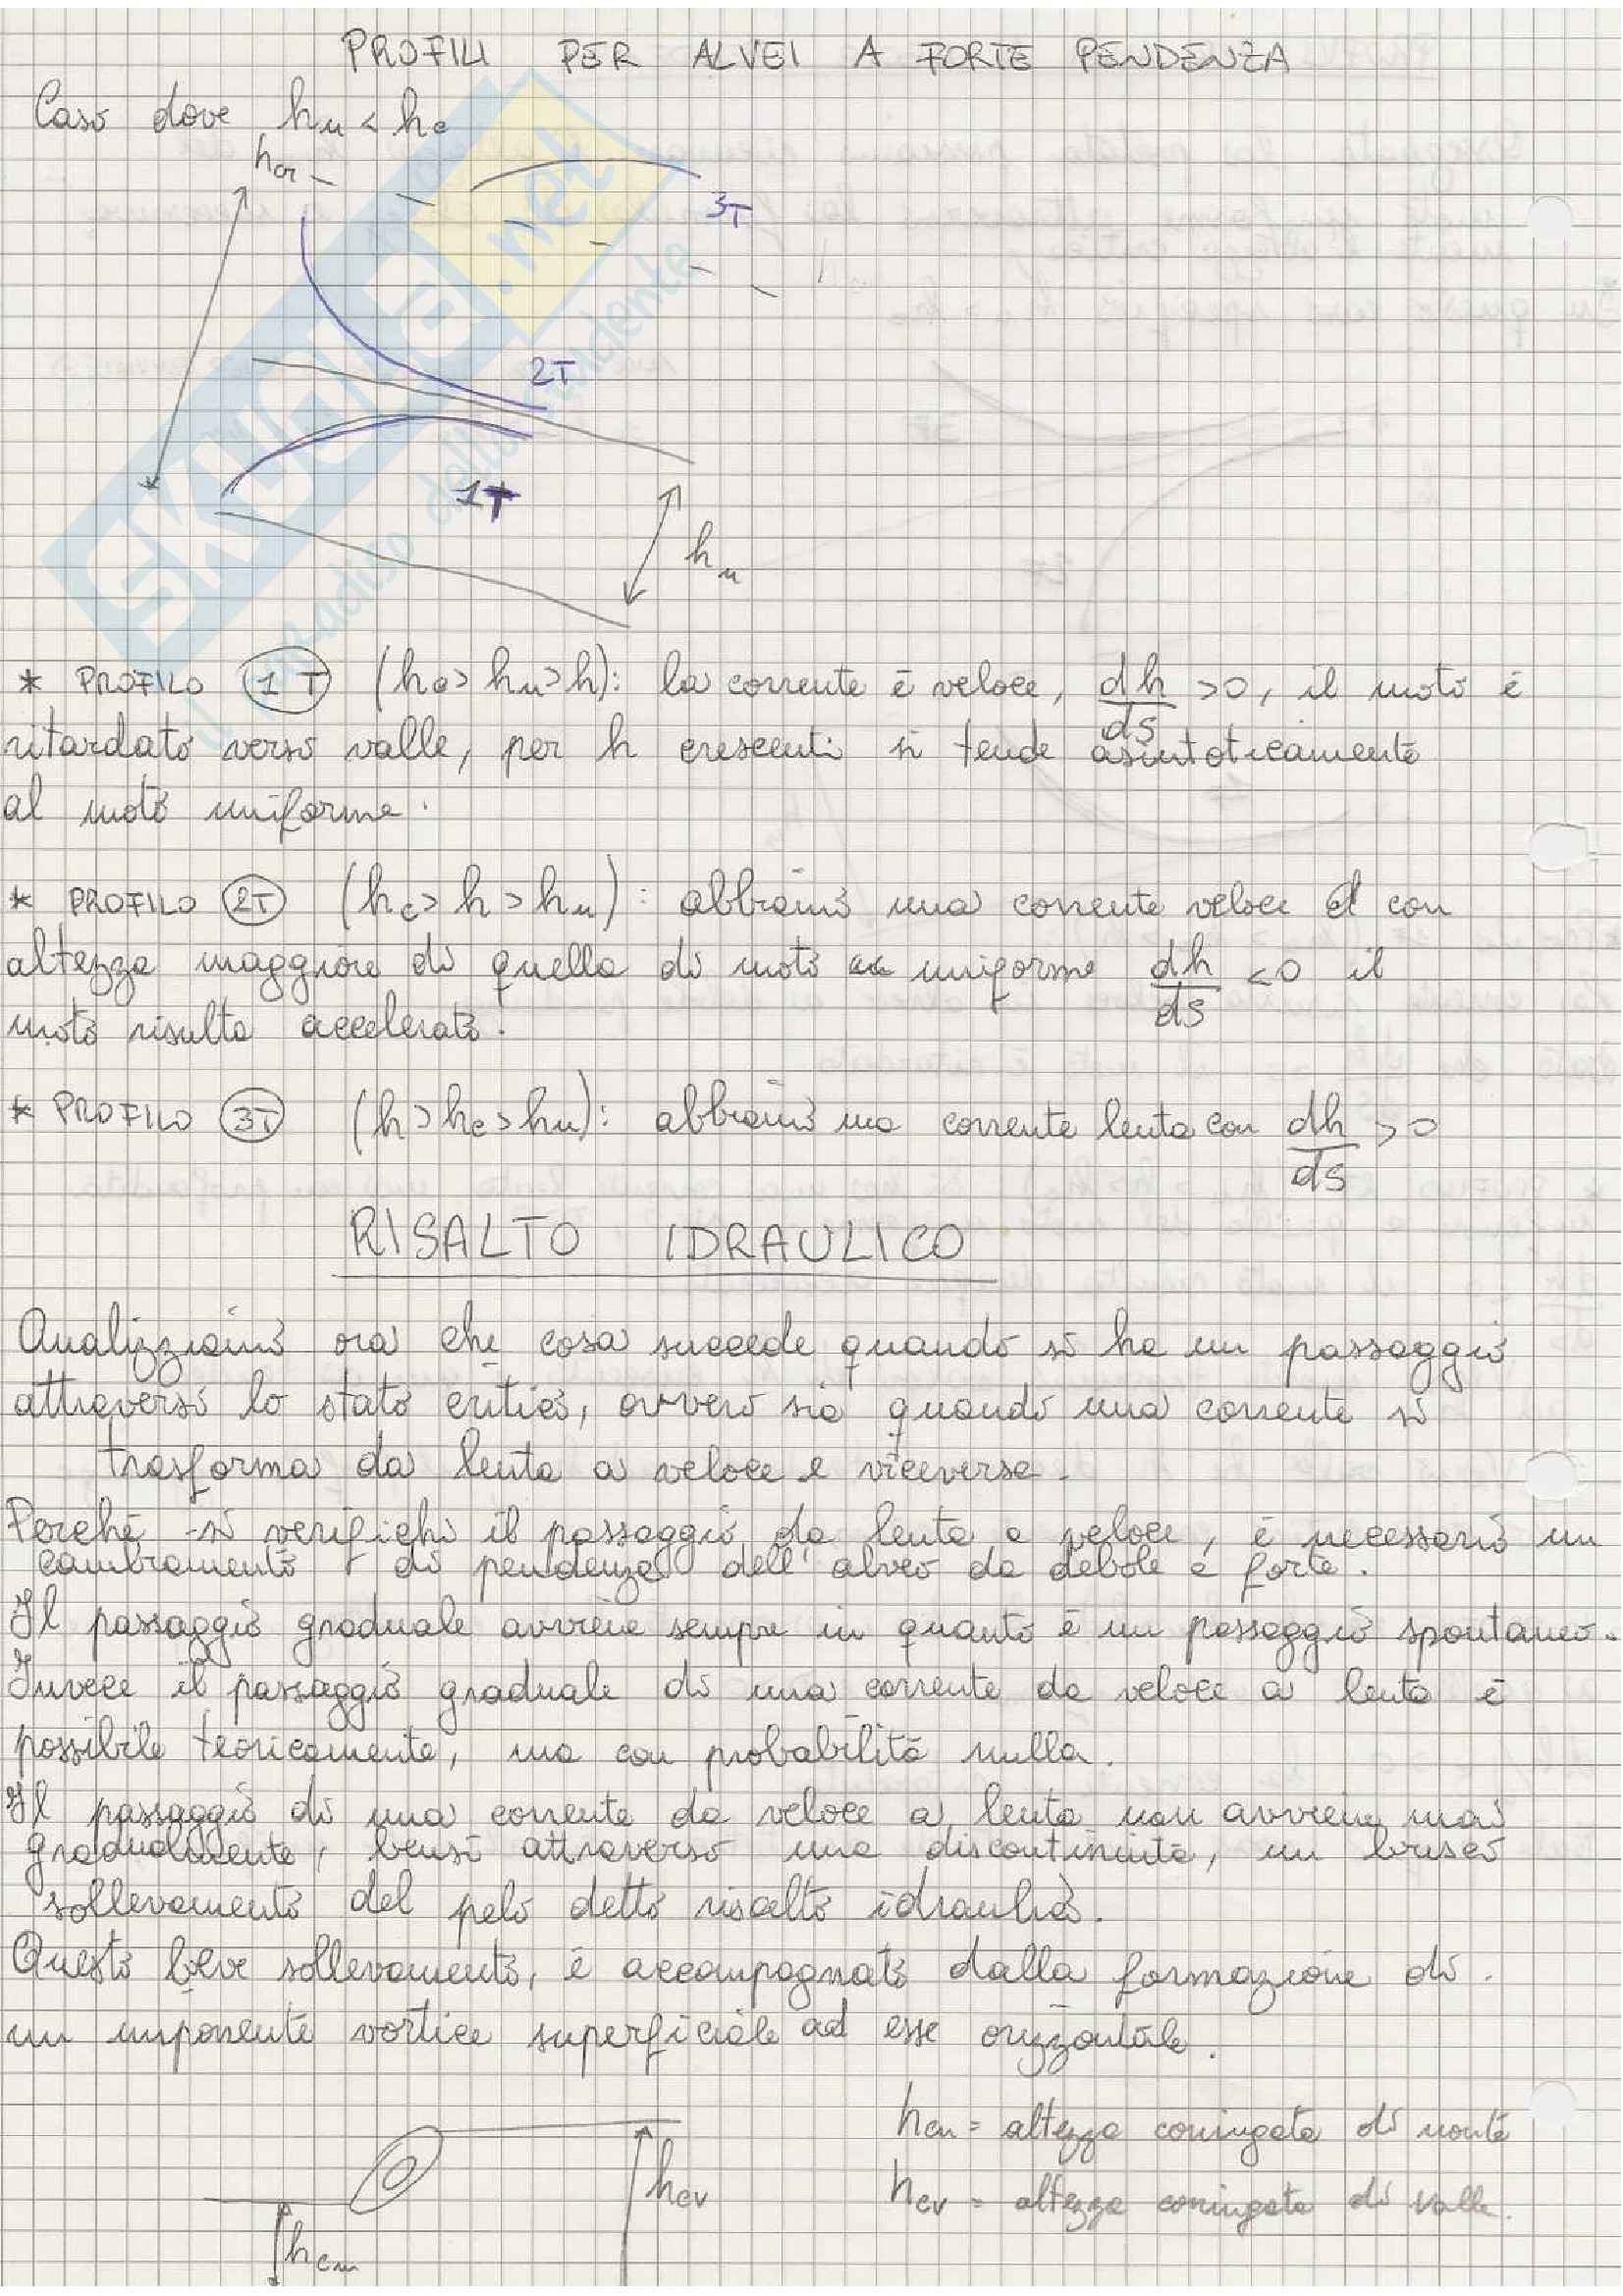 PROFILI PER ALVEI A FORTE PENDENZA
Caso dove hu < hc
hcr
3T
2T
1T
hu
SKUOLA.net
* PROFILO 1T (hc > hu > h): la corrente è veloce, dh/ds >0, il moto è
ritardato verso valle, per h crescenti si tende asintoticamente
al moto uniforme.
* PROFILO 2T (hc > h > hu): abbiamo una corrente veloce ed con
altezza maggiore di quella di moto uniforme dh/ds <0 il
moto risulta accelerato.
* PROFILO 3T (h > hc > hu): abbiamo una corrente lenta con dh/ds >0
RISALTO IDRAULICO
Analizziamo ora che cosa succede quando si ha un passaggio
attraverso lo stato critico, ovvero sia quando una corrente si
trasforma da lenta a veloce e viceversa.
Perché si verifichi il passaggio da lenta a veloce, è necessario un
cambiamento di pendenza dell'alveo da debole a forte.
Il passaggio graduale avviene sempre in quanto è un passaggio spontaneo.
Invece il passaggio graduale di una corrente da veloce a lenta è
possibile teoricamente, ma con probabilità nulla.
Il passaggio di una corrente da veloce a lenta non avviene mai
gradualmente, bensì attraverso una discontinuità, un brusco
sollevamento del pelo detto risalto idraulico.
Questo breve sollevamento, è accompagnato dalla formazione di
un imponente vortice superficiale ad esse orizzontale.
hcm = altezza coniugata di monte
hcv = altezza coniugata di valle.
hcv
hcm